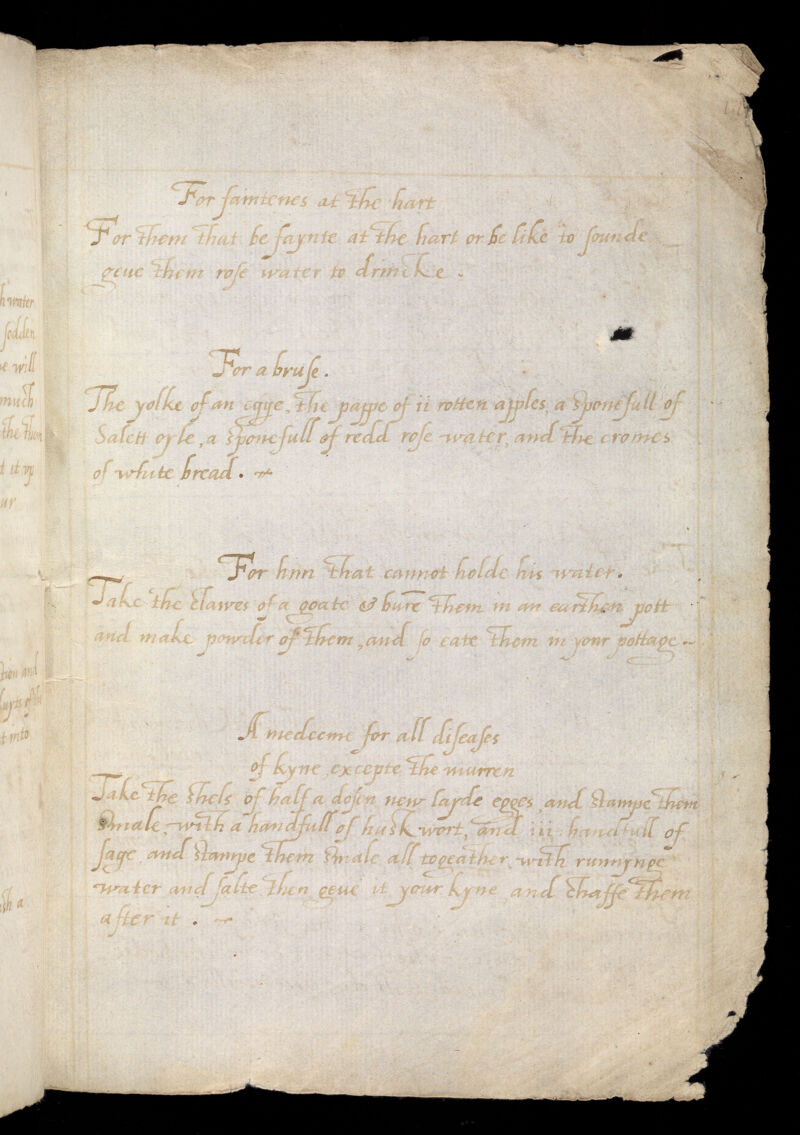 h water
sodden
e will
much
the them
t it vp
ur
tion and
t into
ith a
For faintenes at the hart
For them that be faynte at the hart or be like to sounde
geue them rose water to drincke .
For a bruse .
The yolke of an egge, the pappe of ii rotten apples, a sponefull of
Salett oyle, a sponefull of redd rose water, and the cromes
of white bread .
For him that cannot holde his water .
Take the clawes of a goate & burē them in an earthen pott
and make powder of them, and so eate them in your pottage
A medecine for all diseases
of kyne excepte the murren
Take the shels of half a dosen new layde egges and stampe them
smale, with a handfull of husk wort, and iii handfull of
sage and stampe them smale all togeather with runnynge
water and salte then geue it your kyne and chaffe them
after it .